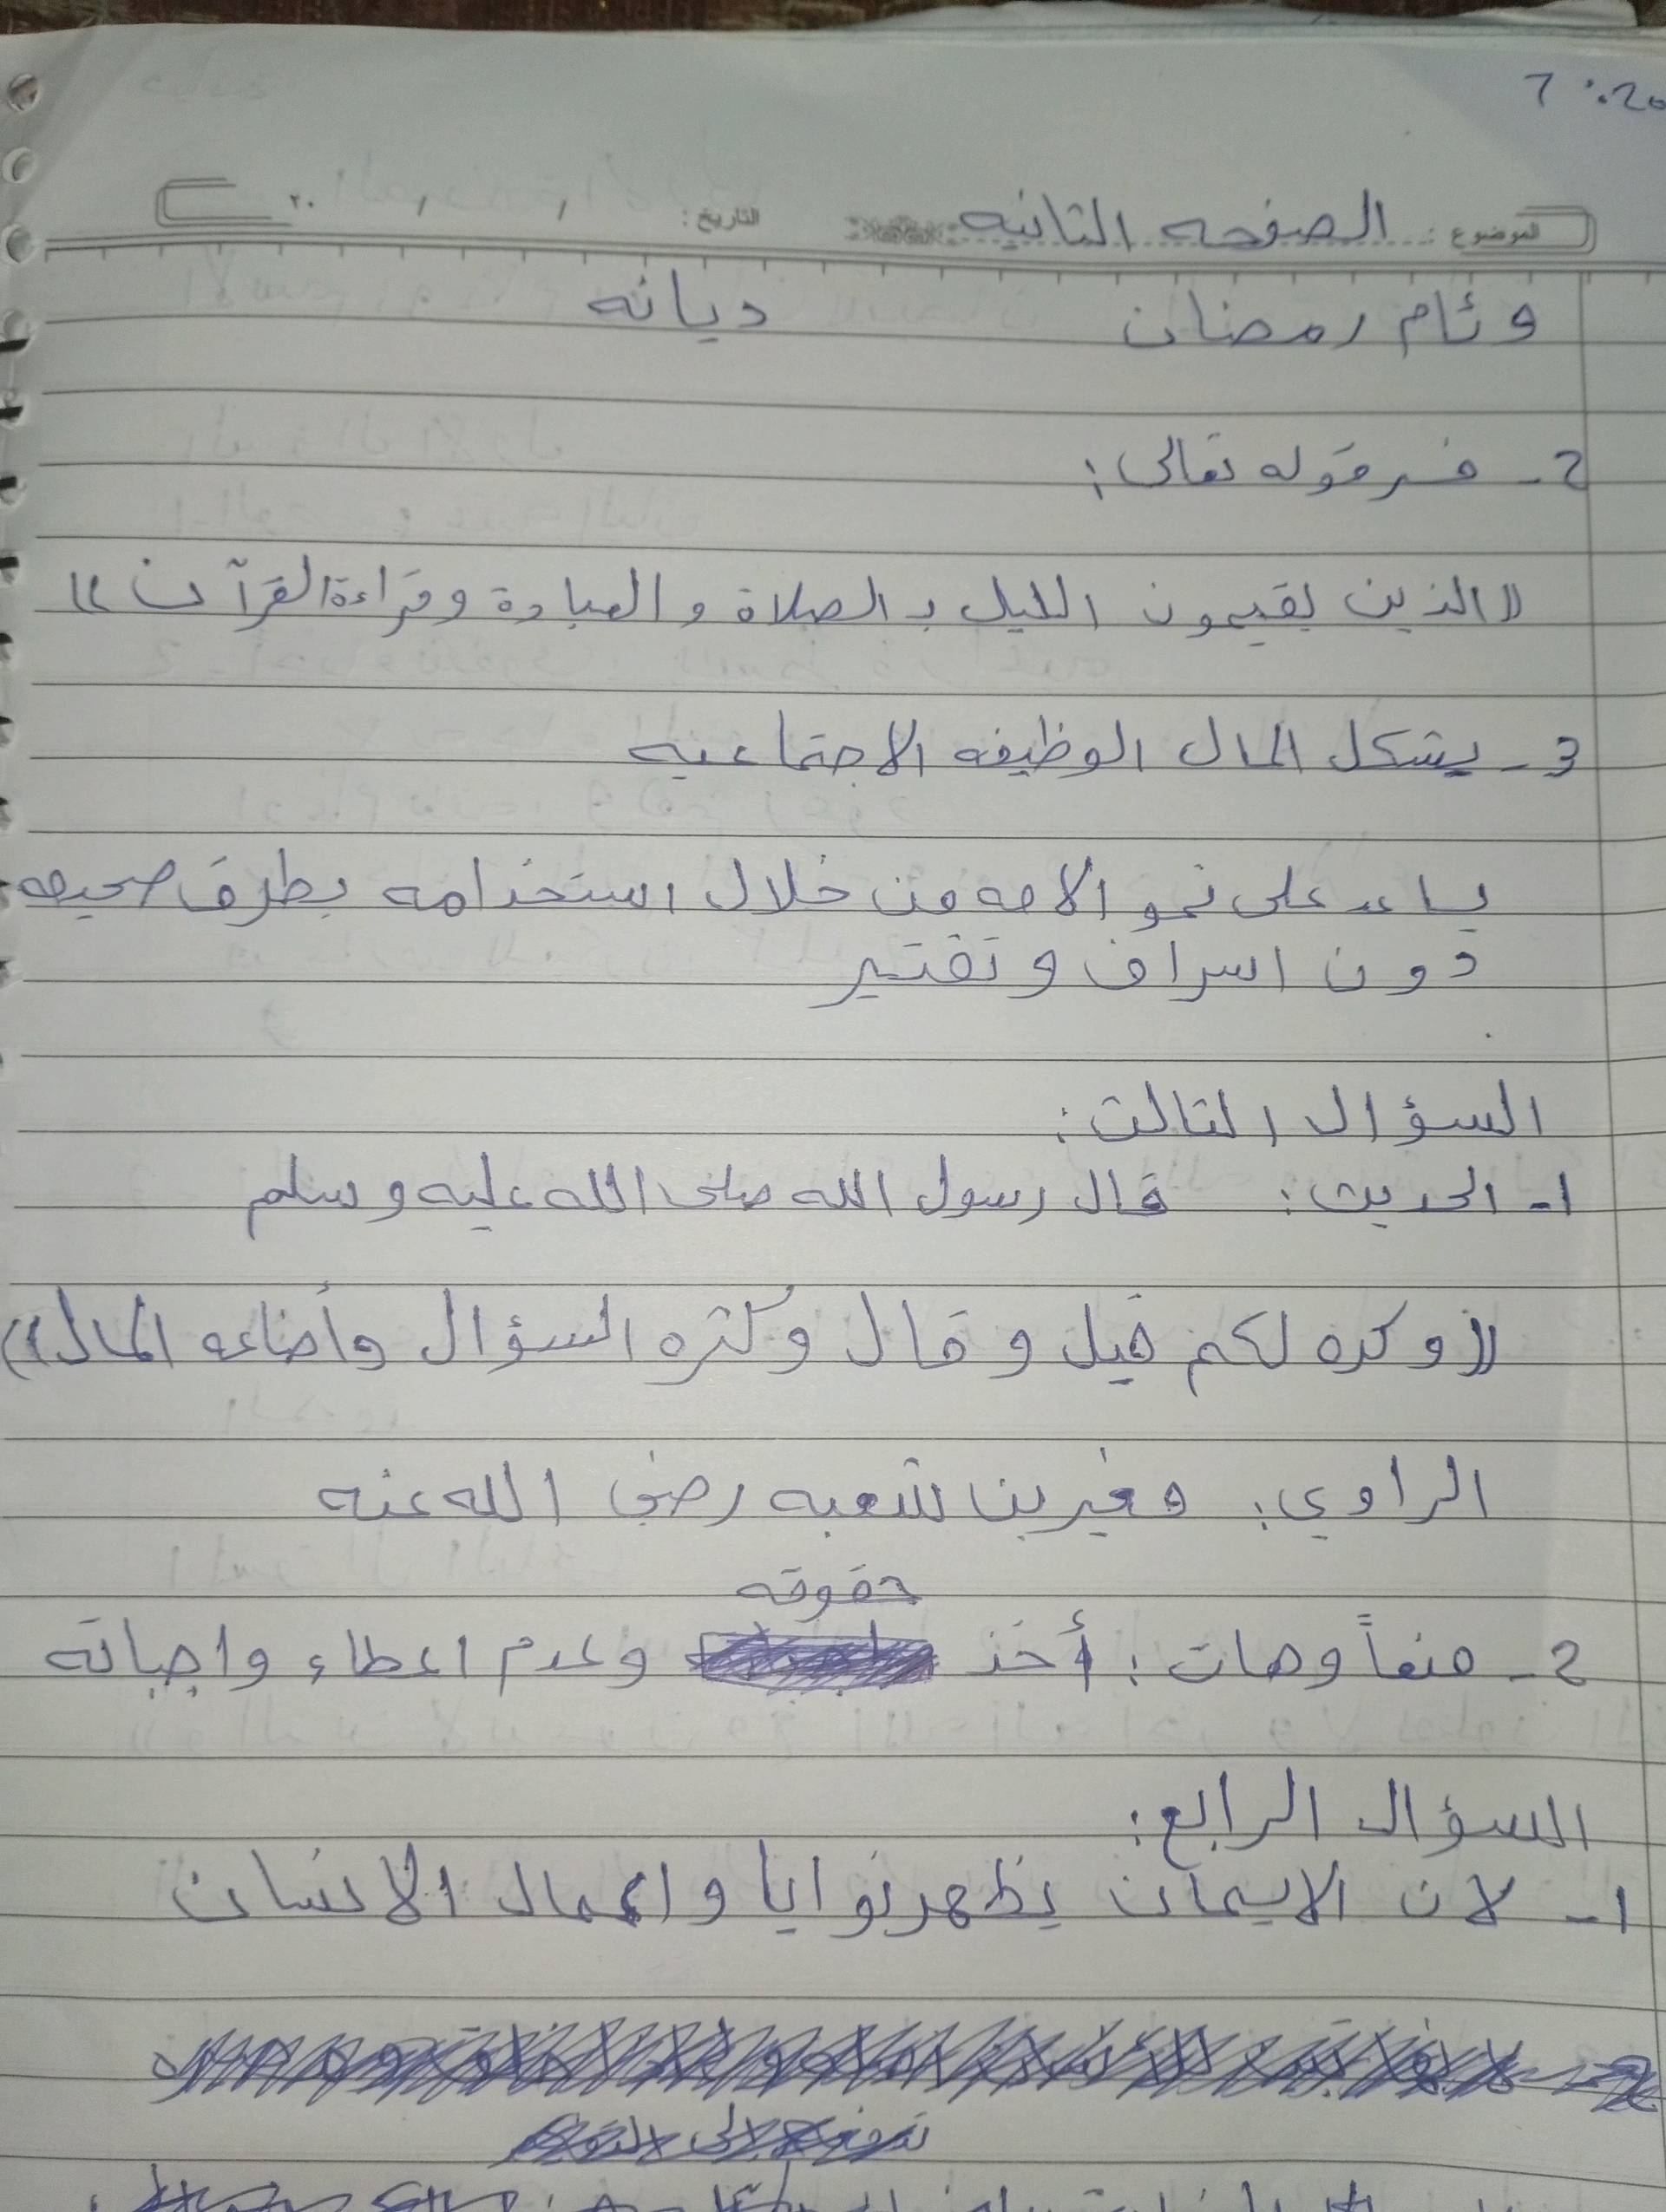 7 ∴20
الموضوع: الصفحه الثانيه التاريخ: / / ٢٠
وئام رمضان ديانه
2- فسر قوله تعالى:
((الذين يقيمون الليل بـ الصلاة و العبادة وقراءة القرآن))
3- يشكل المال الوظيفه الاجتماعيه
يساعد على نمو الامه من خلال استخدامه بطرق صحيحه
دون اسراف وتقتير
السؤال الثالث:
1- الحديث: قال رسول الله صلى الله عليه وسلم
((وكره لكم قيل وقال وكثره السؤال وأضاعه المال))
الراوي: مغير بن شعبه رضي الله عنه
حقوقه
2- منعاً وهات: أخذ وعدم اعطاء واجباته
السؤال الرابع:
1- لان الايمان يظهر نوايا واعمال الانسان